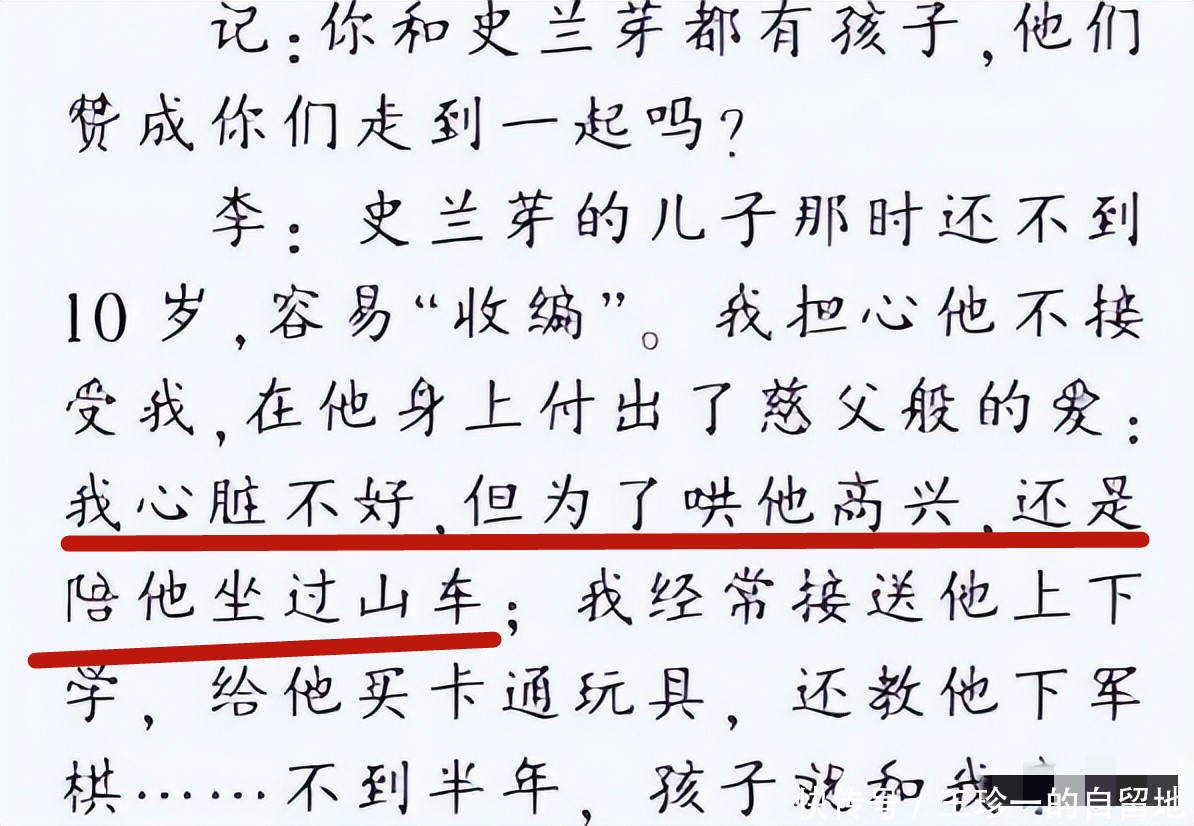 记:你和史兰芽都有孩子,他们
赞成你们走到一起吗?
李:史兰芽的儿子那时还不到
10岁,容易“收编”。我担心他不接
受我,在他身上付出了慈父般的爱:
我心脏不好,但为了哄他高兴,还是
陪他坐过山车;我经常接送他上下
学,给他买卡通玩具,还教他下军
棋……不到半年,孩子就和我
快传号/王珍一的自留地